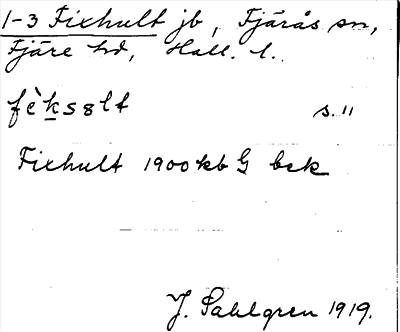 1-3 Fixhult jb, Fjärås sn,
Fjäre hd, Hall. l.
fè̀ksølt s. 11
Fixhult 1900 kb G bek
J. Sahlgren 1919.